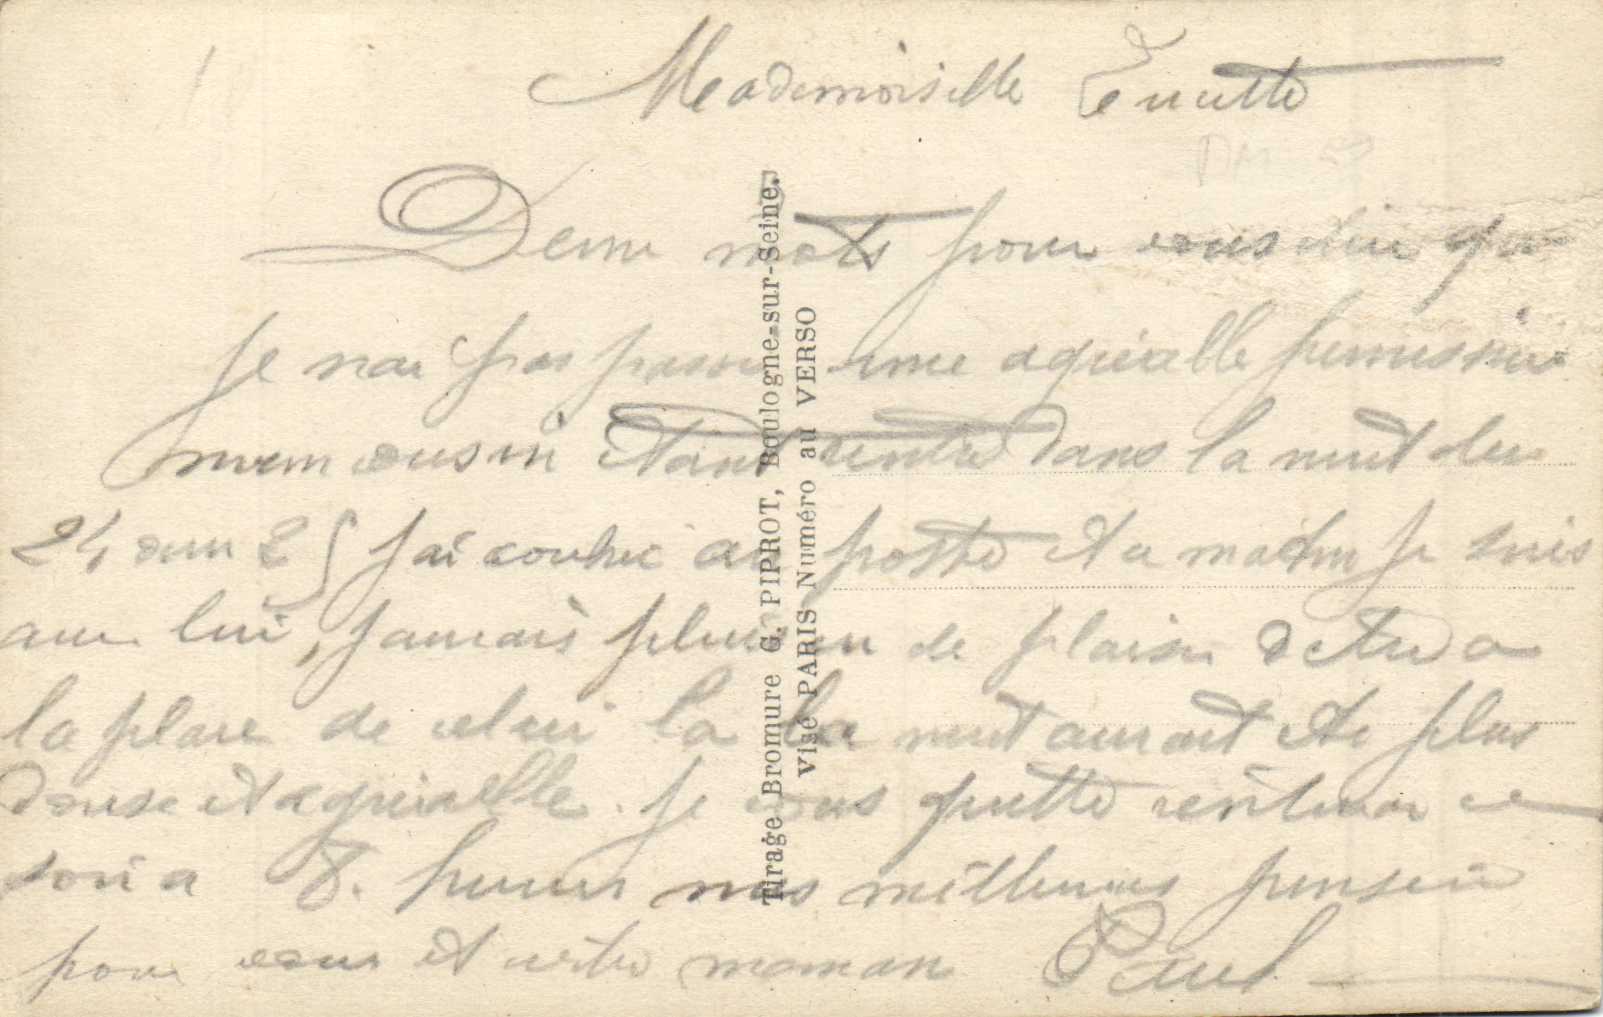 Mademoiselle
Deux mots pour vous dire que
je nai pas passer une agréable permission
mon cousin étant rentré dans la nuit du
24 aux 25 jai couché au poste et ce matin je suis
avec lui, jamais plus eu de plaisir detre a
la place de celui la la nuit aurait été plus
douse et agréable. je vous quitte rentrer ce
soir a 8. heures mes meilleures pensées
pour vous et votre maman Paul
Tirage Bromure G. PIPROT, Boulogne-sur-Seine.
Visé PARIS Numéro au VERSO